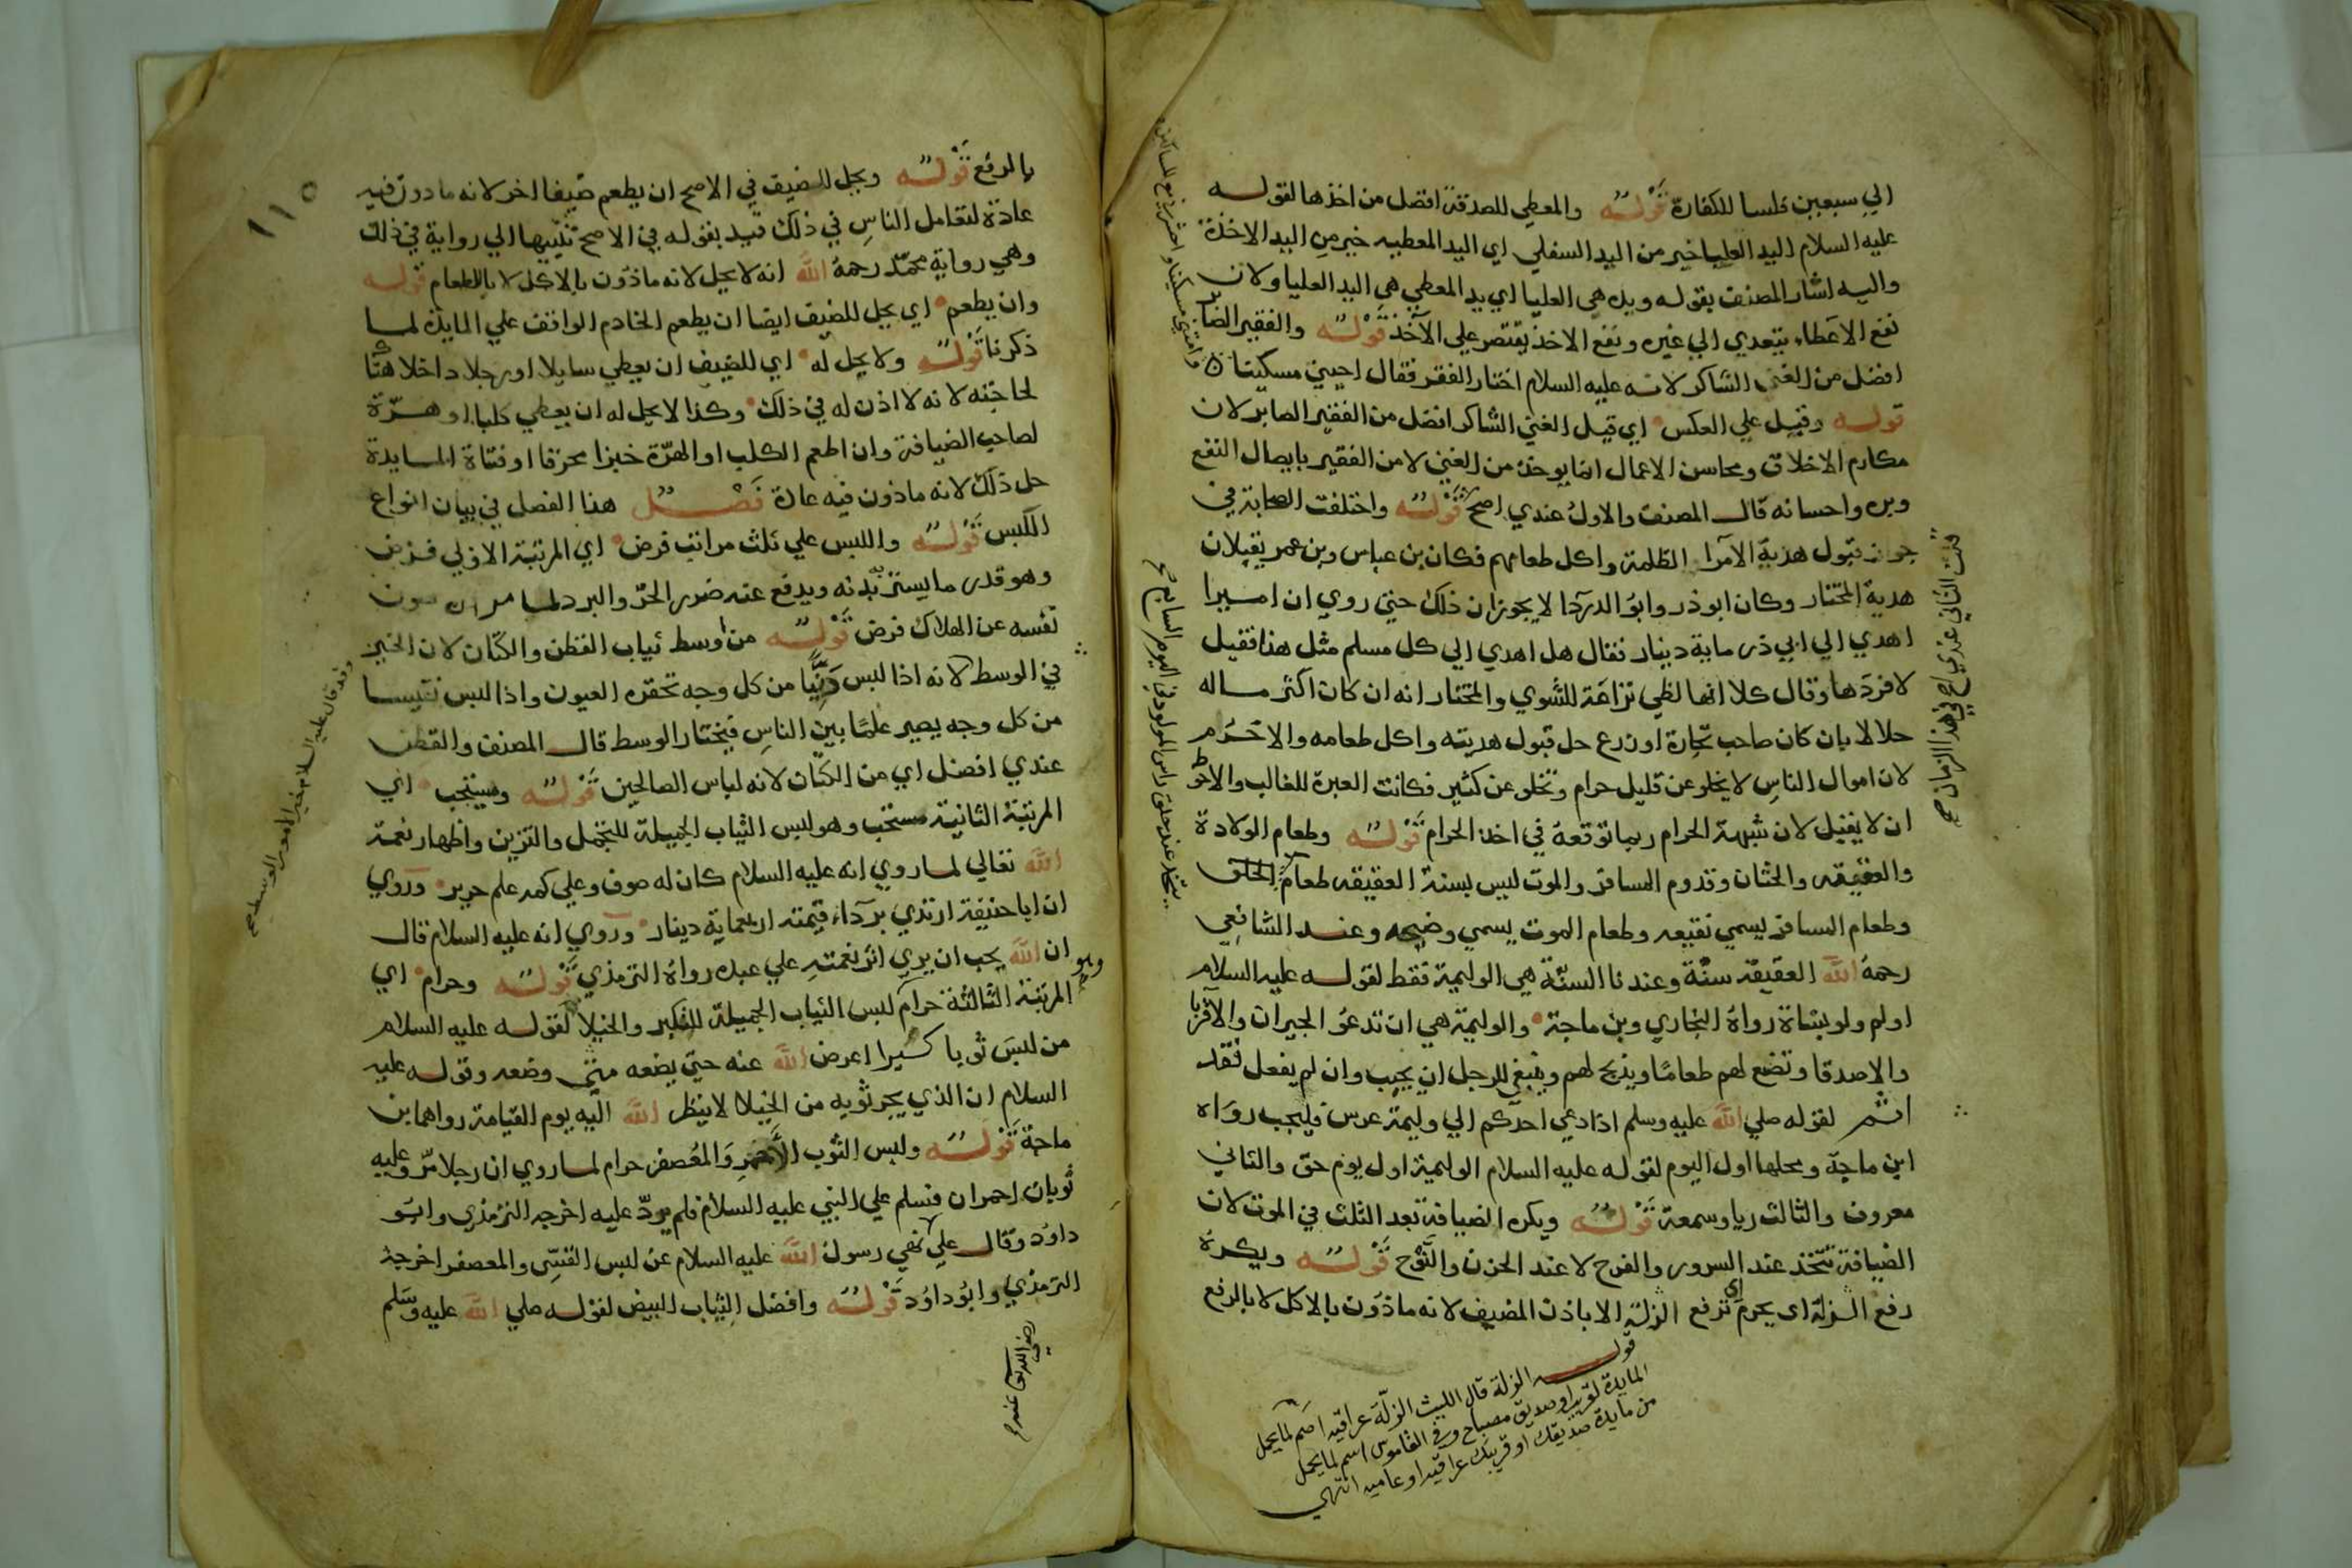 الي سبعين فلسا للكفارة قولــه والمعطي للصدقة افضل من اخذها لقولــه
عليه السلام اليد العليا خير من اليد السفلي اي اليد المعطيه خير من اليد الاخذة
واليه اشار المصنف بقوله ويده هي العليا اي يد المعطي هي اليد العليا ولان
نفع الاعطاء يتعدي الي غيره ونفع الاخذ يقتصر علي الآخذ قولــه والفقير الصابر
افضل من الغني الشاكر لانه عليه السلام اختار الفقر فقال احيني مسكينا
قولــه وقيل علي العكس اي قيل الغني الشاكر افضل من الفقير الصابر لان
مكارم الاخلاق ومحاسن الاعمال انما يوخذ من الغني لا من الفقير بايصال النفع
وبره واحسانه قال المصنف والاول عندي اصح قولــه واختلفت الصحابة في
جواز قبول هدية الآمرا الظلمة واكل طعامهم فكان بن عباس وبن عمر يقبلان
هدية المختار وكان ابو ذر وابو الدردا لا يجوزان ذلك حتي روي ان اميرا
اهدي الي ابي ذر ماية دينار فقال هل اهدي الي كل مسلم مثل هذا فقيل
لا فردها وقال كلا انها لظي نزاعة للشوي والمختار انه ان كان اكثر مــاله
حلالا بان كان صاحب تجارة او زرع حل قبول هديته واكل طعامه والا حَرُم
لان اموال الناس لا يخلو عن قليل حرام وتخلو عن كثير فكانت العبرة للغالب والاحوط
ان لا يقبل لان شبهة الحرام ربما توقعه في اخذ الحرام قولــه وطعام الولادة
والعقيقه والختان وقدوم المسافر والموت ليس بسنة العقيقه طعام الحلق
وطعام المسافر يسمي نقيعه وطعام الموت يسمي وضيمه وعند الشافعي
رحمه الله العقيقة سنّة وعندنا السنّة هي الوليمة فقط لقولــه عليه السلام
اولم ولو بشاة رواه البخاري وبن ماجة والوليمة هي ان تدعو الجيران والاقربا
والاصدقا وتضع لهم طعامًا ويذبح لهم وينبغي للرجل ان يجيب وان لم يفعل فقد
اثــم لقوله صلي الله عليه وسلم اذا دعي احدكم الي وليمة عرس فليجب رواه
ابن ماجة ومحلها اول اليوم لقوله عليه السلام الوليمة اول يوم حق والثاني
معروف والثالث ريا وسمعة قولــه ويكره الضيافة بعد الثلث في الموت لان
الضيافة تتخذ عند السرور والفرح لا عند الحزن والنَّوْح قولــه ويكره
رفع الزلة اي يحرم اي ترفع الزلة الا باذن المضيف لانه ماذون بالاكل لا بالرفع
واحشرني مع المساكين
يتخذ عند حلق راس المولود في اليوم السابع صح
قلت الثاني عندي اصح في هذا الزمان صح
قولــه الزلة قال الليث الزلّة عراقيه اسم لما يحمل
المايدة لقريب او صديق مصباح وفي القاموس اسم لما يحمل
من مايدة صديقك او قريبك عراقيه او عاميه انتهي
١١٥
بالرفع قولــه ويحل للضيف في الاصح ان يطعم ضيفا اخر لانه ماذون فيه
عادة لتعامل الناس في ذلك قيد بقوله في الاصح تنبيها الي رواية في ذلك
وهي رواية محمّد رحمه الله انه لا يحل لانه ماذون بالاكل لا بالاطعام قولــه
وان يطعم اي يحل للضيف ايضا ان يطعم الخادم الواقف علي المايدة لما
ذكرنا قولــه ولا يحل له اي للضيف ان يعطي سايلا او رجلا داخلا هناك
لحاجته لانه لا اذن له في ذلك وكذا لا يحل له ان يعطي كلبا او هــرّة
لصاحب الضيافة وان اطعم الكلب او الهرّة خبزا محرقا او فتاة المــايدة
حل ذلك لانه ماذون فيه عادة فصــل هذا الفصل في بيان انواع
اللّبس قولــه واللبس علي ثلث مراتب فرض اي المرتبة الاولي فرض
وهو قدر ما يستر بدنه ويدفع عنه ضرر الحرّ والبرد لما مر ان صون
نفسه عن الهلاك فرض قولــه من اوسط ثياب القطن والكتان لان الخير
في الوسط لانه اذا لبس دنيًّا من كل وجه تحقره العيون واذا لبس نفيسا
من كل وجه يصير علمًا بين الناس فيختار الوسط قال المصنف والقطن
عندي افضل اي من الكتّان لانه لباس الصالحين قولــه ومستحب اي
المرتبة الثانية مستحب وهو لبس الثياب الجميلة للتجمل والتزين واظهار نعمة
الله تعالي لما روي انه عليه السلام كان له صوف وعلي كمه علم حرير وروي
ان ابا حنيفة ارتدي برداء قيمته اربعماية دينار وروي انه عليه السلام قال
ان الله يحب ان يري اثر نعمته علي عبده رواه الترمذي قولــه وحرام اي
وهو
المرتبة الثالثة حرام لبس الثياب الجميلة للتكبر والخيلا لقولــه عليه السلام
من لبس ثوبا كــبيرا اعرض الله عنه حتي يضعه متي وضعه وقولــه عليه
السلام ان الذي يجر ثوبه من الخيلا لا ينظر الله اليه يوم القيامة رواهما بن
ماجة قولــه ولبس الثوب الأحمر والمُعصفر حرام لما روي ان رجلا مرّ وعليه
ثوبان احمران فسلم علي النبي عليه السلام فلم يردّ عليه اخرجه الترمذي وابو
داود وقال علي نهي رسول الله عليه السلام عن لبس القسّي والمعصفر اخرجه
الترمذي وابو داود قولــه وافضل الثياب البيض لقوله صلي الله عليه وسَلم
رضي الله عنه صح
وقد قال عليه السلام خير الامور الوسط صح